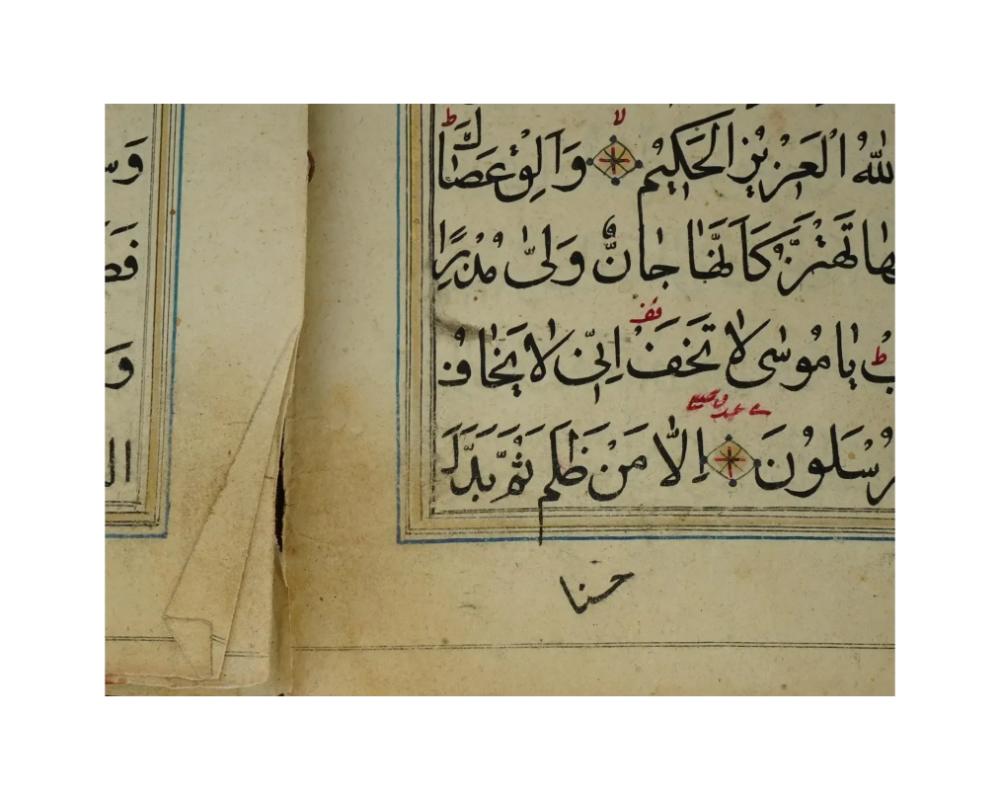 للهُ الْعَزِيزُ الْحَكِيمُ وَاَلْقِ عَصَاكَ ط
هَا تَهْتَزُّ كَاَنَّهَا جَانٌّ وَلّٰى مُدْبِرًا
ط يَا مُوسٰى لَا تَخَفْ اِنّٖى لَا يَخَافُ
رْسَلُونَ اِلَّا مَنْ ظَلَمَ ثُمَّ بَدَّلَ
حسنا